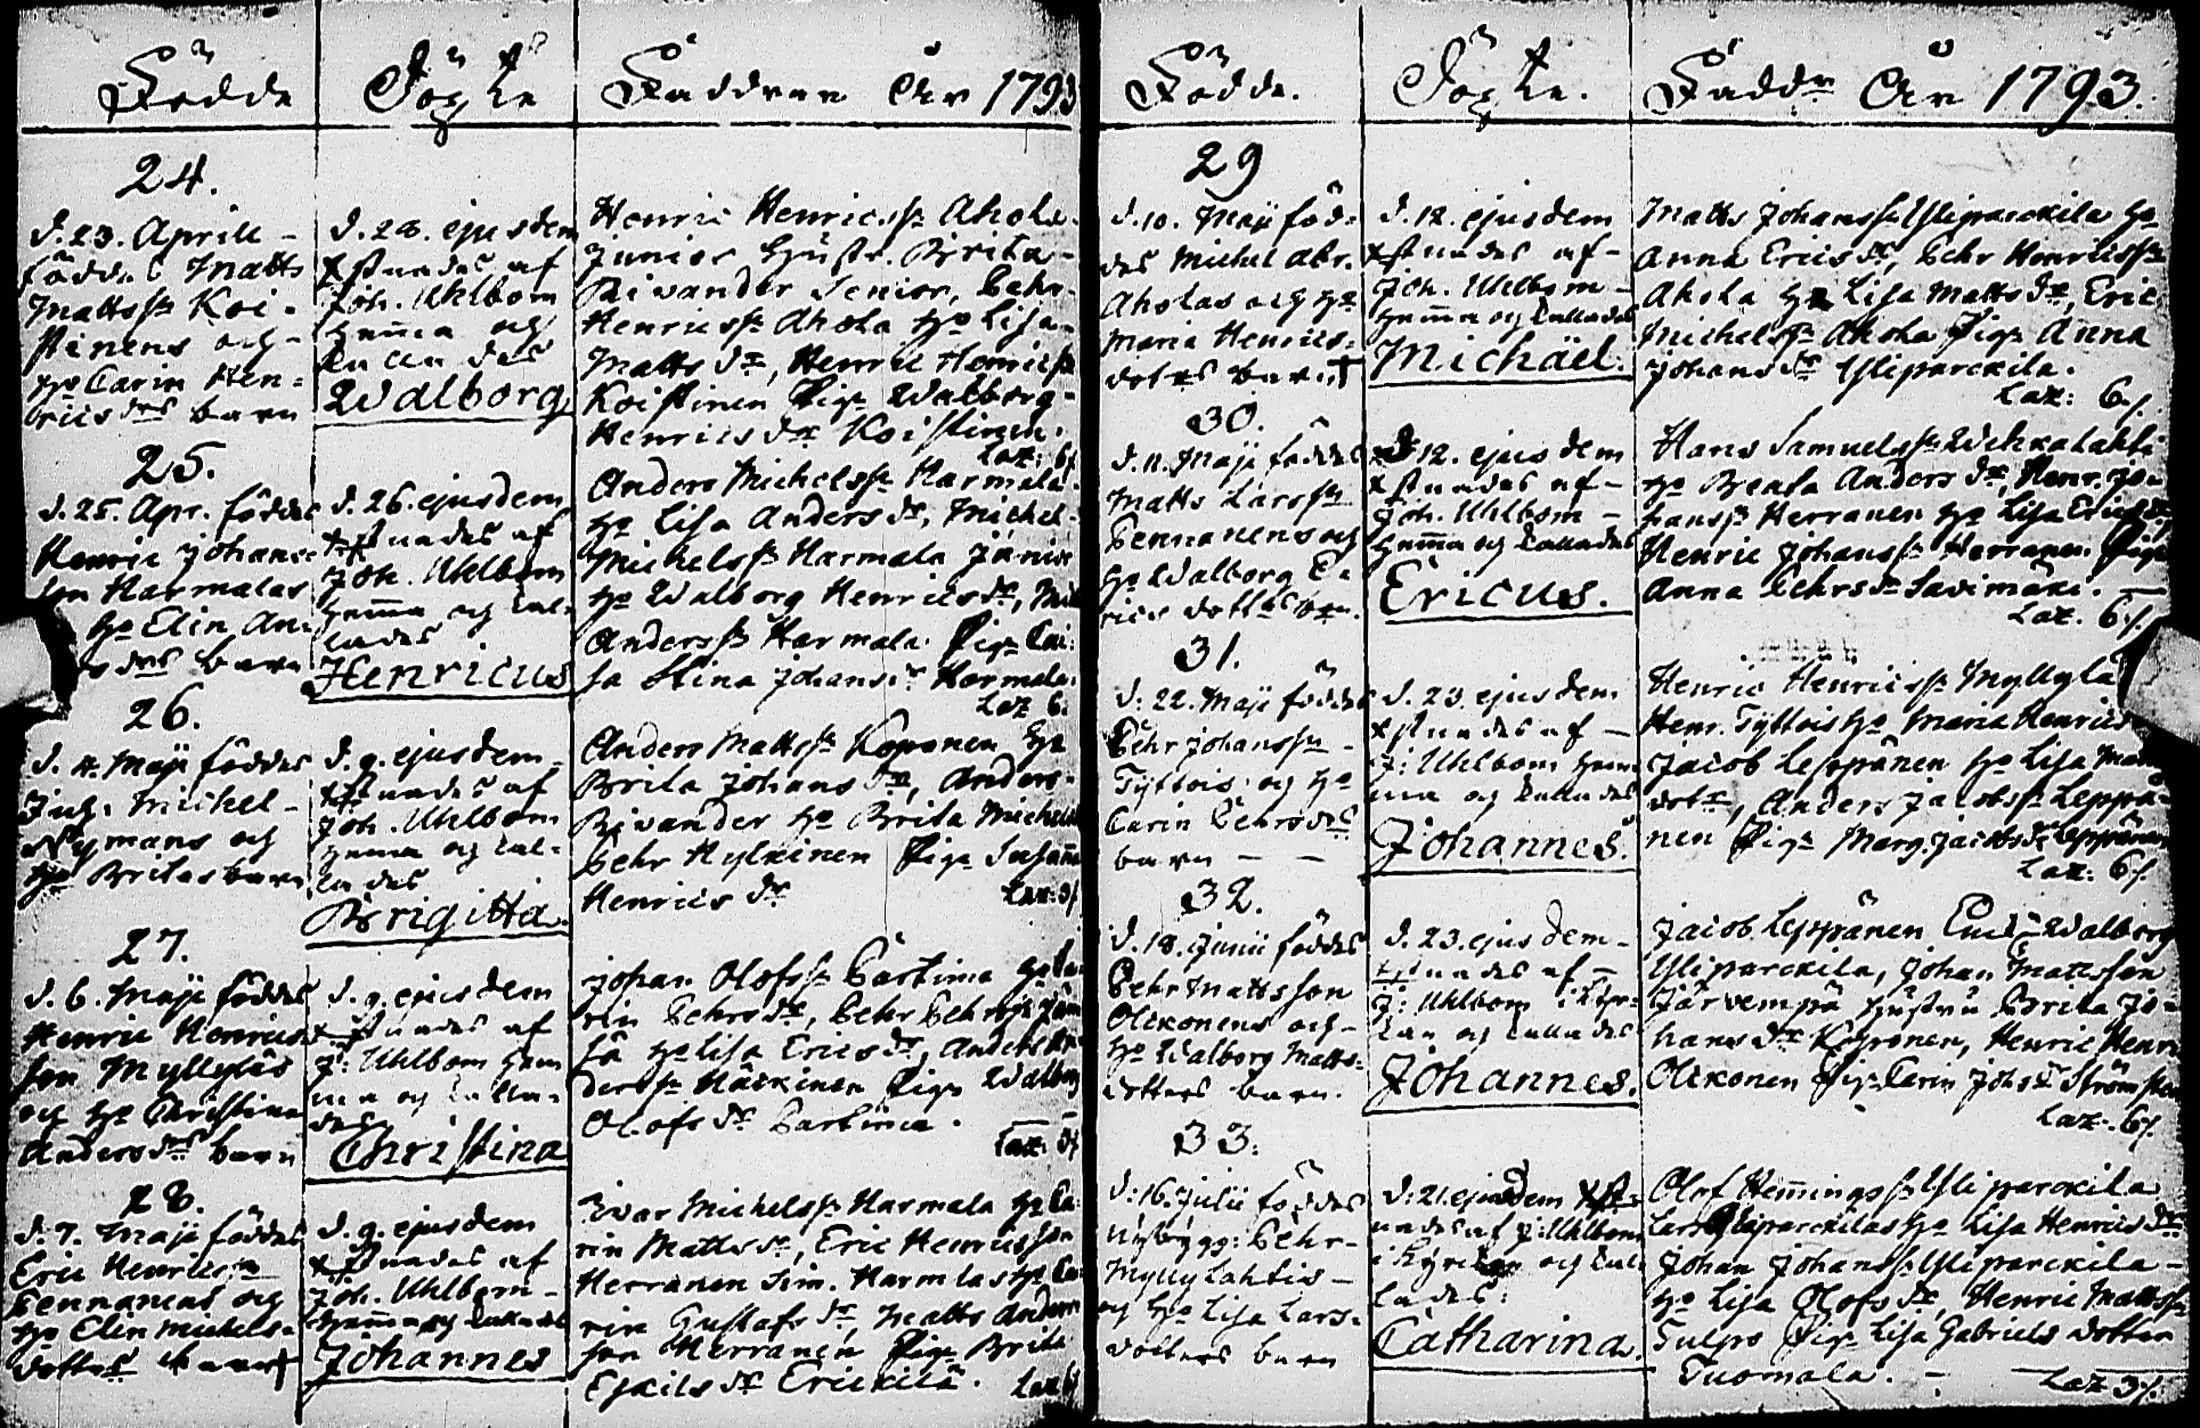 Födde
Döpte
Faddrar År 1793
24.
d. 23. Aprill -
föddes Matts
Mattss. Koi-
stinens och
Ho Carin Hen-
ricsdrs barn
d. 28. ejusdem
xstnades af
Joh. Uhlbom
hema och
kallades
Walborg
Henric Henricss. Ahola
Junior Hustr. Brita
Rivander Senior, Pehr
Henricss. Ahola Ho Lisa
Matts dr, Henric Henricss
Koistinen Pig. Walborg
Henrics dr Koistinen.
Laz: 6
25.
d. 25. Apr. föddes
Henric Johans-
son Harmalas
Ho Elin An-
drs barn
d. 26. ejusdem
xstnades af
Joh. Uhlbom
hema og kal-
lades
Henricus
Anders Michelss. Harmala
Ho Lisa Anders dr, Michel
Michelss. Harmala Junior
Ho Walborg Henrics dr,
Anderss. Harmala Pig. Cai-
sa Stina Johans dr Harmala.
Laz 6.
26.
d. 4. Maji föddes
Michel
Nymans og
Ho Britas barn
d. 9. ejusdem
xstnades af
Joh. Uhlbom
hema og kal-
lades
Brigitta
Anders Mattss. Koponen Ho
Brita Johans dr, Anders
Rivander Ho Brita Michels
Pehr Hylkinen Pig. Susana
Henrics dr
Laz: 3
27.
d. 6. Maji föddes
Henric Henrics-
son Myllyläs
og Ho Christina
Anders drs barn
d. 9. ejusdem
xstnades af
J: Uhlbom hem-
ma og kalla-
des
Christina
Johan Olofss. Partima Ho Ca-
rin Pehrs dr, Pehr Pehrss.
Ho Lisa Erics dr, Anders An-
derss. Häckinen Pig. Walborg
Olofs dr Partima.
Laz. 3
28.
d. 7. Maji föddes
Eric Henricss.
Pennanens og
Ho Elin Michels-
dotters barn
d. 9. ejusdem
xstnades af
Joh. Uhlbom -
hema og kallades
Johannes
Ivar Michelss. Harmala Ho Ca-
rin Matts dr, Eric Henricsson
Herranen Sim. Harmalas Ho Ca-
rin Gustafs dr, Matts Anders
son Herranen Pig. Brita
Eskils dr Erickilä.
Laz 6
Födde.
Döpte.
Faddr År 1793.
29
d. 10. Maji föd-
des Michel Abr.
Aholas och Ho
Maria Henrics-
dotrs barn
d. 12. ejusdem
xstnades af -
Joh. Uhlbom -
hema og kallades
Michäel.
Matts Johanss. Yliparckila Ho
Anna Erics dr, Pehr Henricss.
Ahola Ho Lisa Matts dr, Eric
Michelss. Ahola Pig. Anna
Johans dr Yliparckila.
Laz: 6
30.
d. 11. Maji föddes
Matts Larss.
Pennanens og
Ho Walborg E-
rics dottrs barn.
d. 12. ejusdem
xstnades af -
Joh. Uhlbom -
hema og kallades
Ericus.
Hans Samuelss. Wehkalahti
Ho Beata Anders dr, Henr. Jo-
hanss. Herranen Ho Lisa Erics dr
Henric Johanss. Herranen Pig.
Anna Pehrs dr Savimäki.
Laz. 6
31.
d: 22. Maji föddes
Pehr Johanss. -
Tyttöis og Ho
Carin Pehrs drs
barn - -
d. 23. ejusdem
xstnades af -
J: Uhlbom hem-
ma og kallades
Johannes.
Henric Henricss. Myllylä
Henr. Tyttöis Ho Maria Henrics
Jacob Leppänen Ho Lisa Matts
dotr, Anders Jacobss. Leppä-
nen Pig. Marg. Jacobs dr Leppänen
Laz: 6
32.
d. 18. Junii föddes
Pehr Mattsson
Olckonens och -
Ho Walborg Matts-
dotters barn.
d. 23. ejusdem -
xstnades af -
J: Uhlbom i Kyr-
kan og kallades
Johannes.
Jacob Leppänen Enck. Walborg
Yliparckila, Johan Mattsson
Järvenpä Hustru Brita Jo-
hans dr Kyrönen, Henric Henr.
Olckonen Pig. Carin Johs dr Strömsten
Laz. 6
33.
d: 16. Julii föddes
Nybygg: Pehr -
Myllylahtis -
og Ho Lisa Lars-
dotters barn
d: 21. ejusdem xst-
nades af J: Uhlbom
i Kyrckan og kal-
lades:
Catharina.
Olof Hemingss. Yliparckila
Lars Yliparckilas Ho Lisa Henrics dr
Johan Johanss. Yliparckila -
Ho Lisa Olofs dr, Henric Mattss.
Tulpo Pig. Lisa Gabriels dotter
Tuomala. -
Laz 3